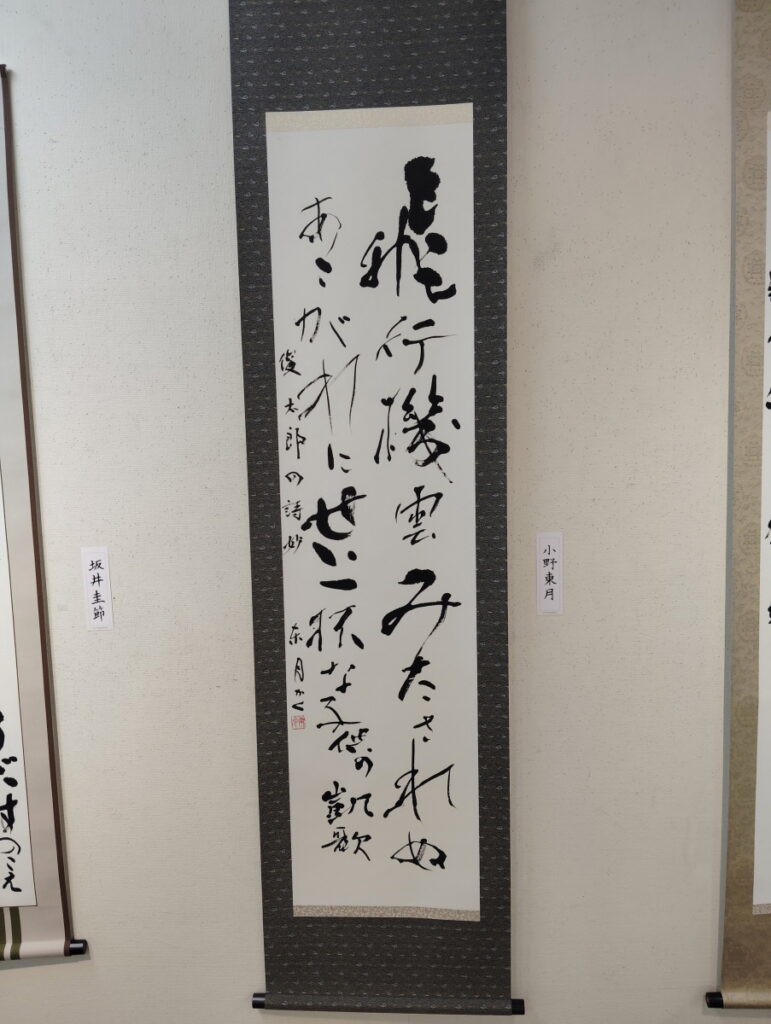 飛行機雲みたされぬ
あこがれにせい一杯な子供の凱歌
俊太郎の詩抄 东月かく
小野東月
坂井圭節